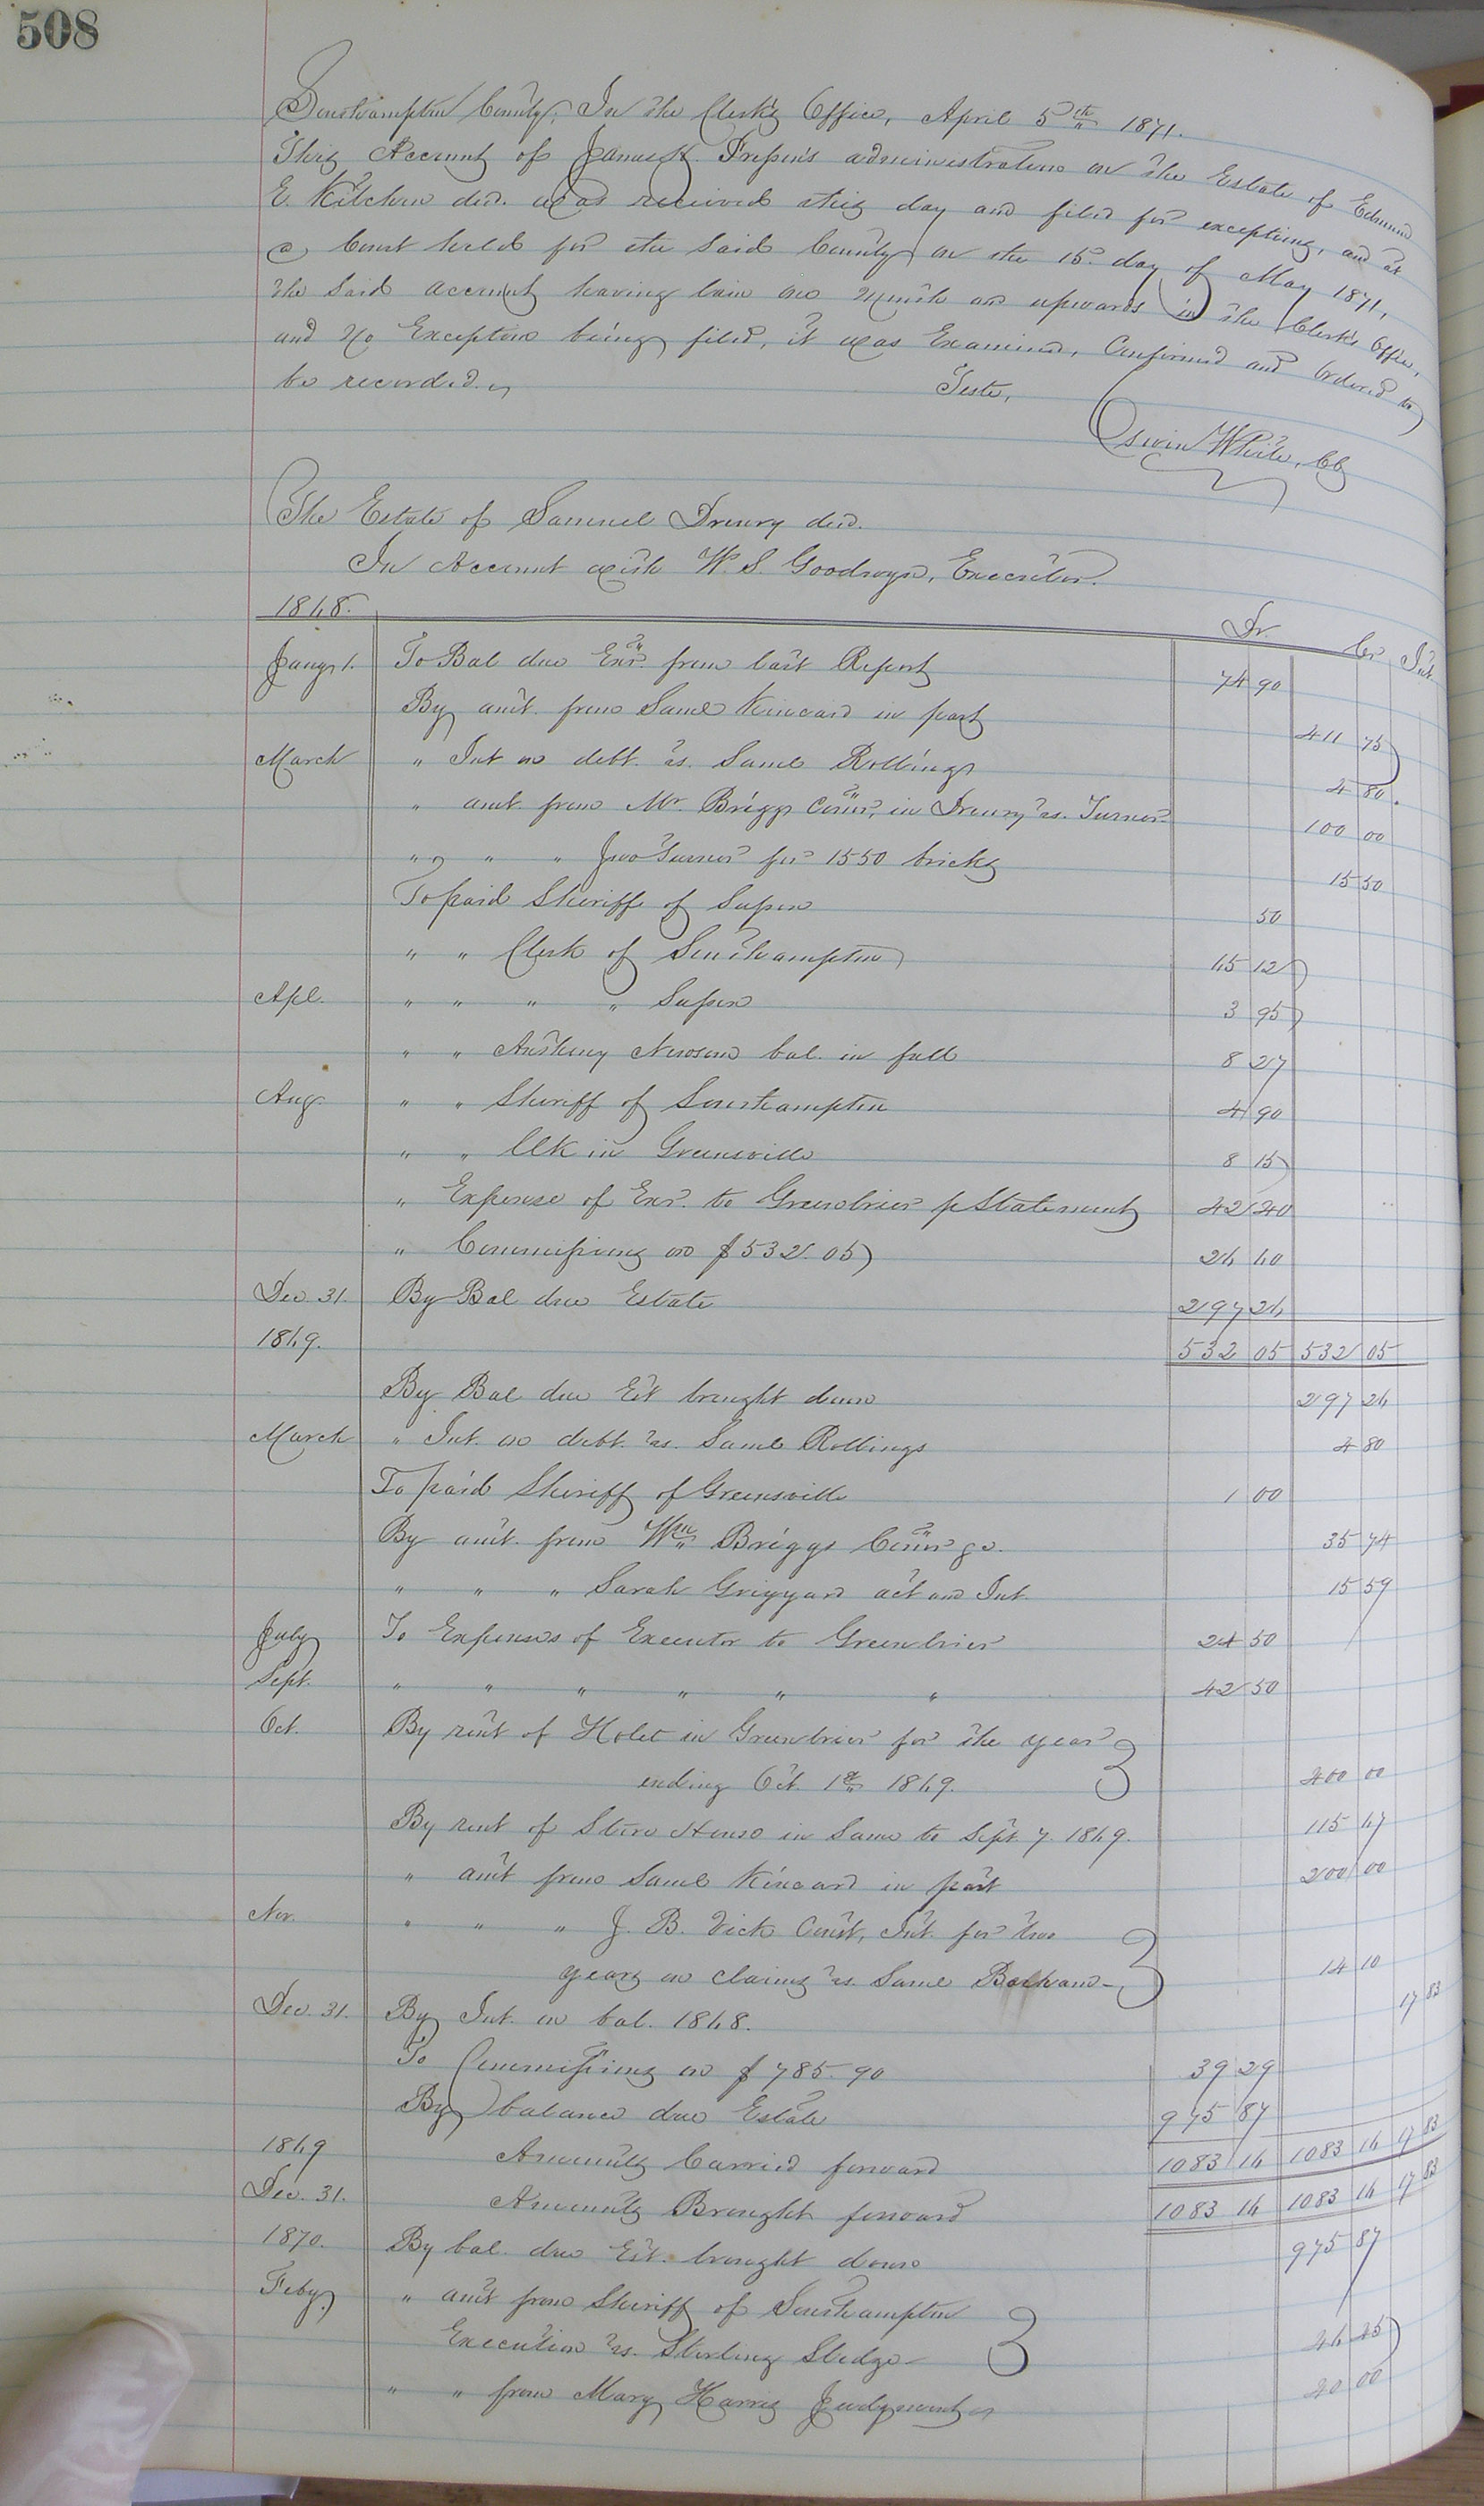 508
Southampton County, In the Clerk's Office, April 5th 1871.
This Account of James H. Prepin's administration on the Estate of Edmund
E. Kitchen decd. was received this day and filed for exceptions, and at
a Court held for the said County on the 15 day of May 1871,
the said account having lain one month and upwards in the Clerk's Office,
and no Exceptions being filed, it was Examined, Confirmed and Ordered to
be recorded.
Teste,
White, CC
The Estate of Samuel Drewry decd.
In Account with W. S. Goodwyn, Executor.
1868. Dr. Cr Int
Jany 1. To Bal due Exr. from last Report 74 90
By amt. from Saml Kincard in part 411 75
March " Int on debt vs. Saml Rollings 4 80
" amt. from Mr. Briggs Comr, in Drewry vs. Turner 100 00
" " " Jno Turner for 1550 bricks 15 50
To paid Sheriff of Sussex 50
" " Clerk of Southampton 15 12
Apl. " " " " Sussex 3 95
" " Anthony Newsom bal. in full 8 27
Aug. " " Sheriff of Southampton 4 90
" " Clk in Greensville 8 15
" Expense of Exr. to Greenbrier p Statement 42 40
" Commissions on $532.05 26 60
Dec. 31. By Bal due Estate 297 26
1869. 532 05 532 05
By Bal due Est brought down 297 26
March " Int. on debt vs. Saml Rollings 4 80
To paid Sheriff of Greensville 1 00
By amt. from Wm Briggs Comr &c. 35 74
" " " Sarah Grizzard act and Int. 15 59
July To Expenses of Executor to Greenbrier 24 50
Sept. " " " " " " 42 50
Oct. By rent of Hotel in Greenbrier for the year
ending Oct. 1st 1869. 400 00
By rent of Store House in Same to Sept. 7. 1869. 115 67
" amt from Saml Kincard in part 200 00
Nov. " " " J. B. Vick Const, Int. for two
years on claims vs. Saml 14 10
Dec. 31. By Int. on bal. 1868. 17 83
To Commissions on $785.90 39 29
By balance due Estate 975 87
1869 Amounts Carried forward 1083 16 1083 16 17 83
Dec. 31. Amounts Brought forward 1083 16 1083 16 17 83
1870. By bal. due Est. brought down 975 87
Feby. " amt from Sheriff of Southampton
Execution vs. Sterling Sledge 26 25
" " from Mary Harris Judgment 20 00